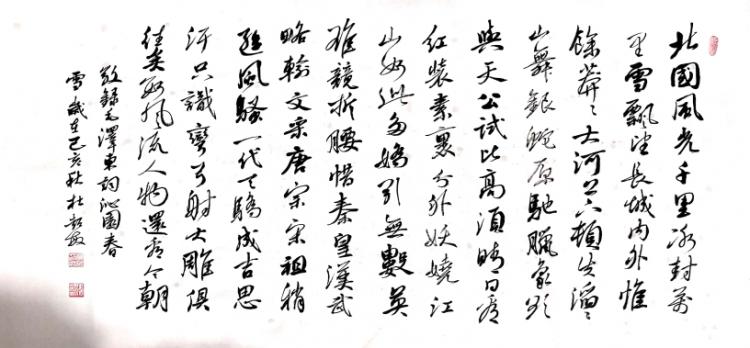 北國風光千里冰封萬
里雪飄望長城內外惟
餘莽々大河上下頓失滔々
山舞銀蛇原馳臘象欲
與天公試比高須晴日看
紅裝素裹分外妖嬈江
山如此多嬌引無數英
雄競折腰惜秦皇漢武
略輸文采唐宗宋祖稍
遜風騷一代天驕成吉思
汗只識彎弓射大雕俱
往矣數風流人物還看今朝
敬錄毛澤東詞沁園春
雪歲在己亥秋杜